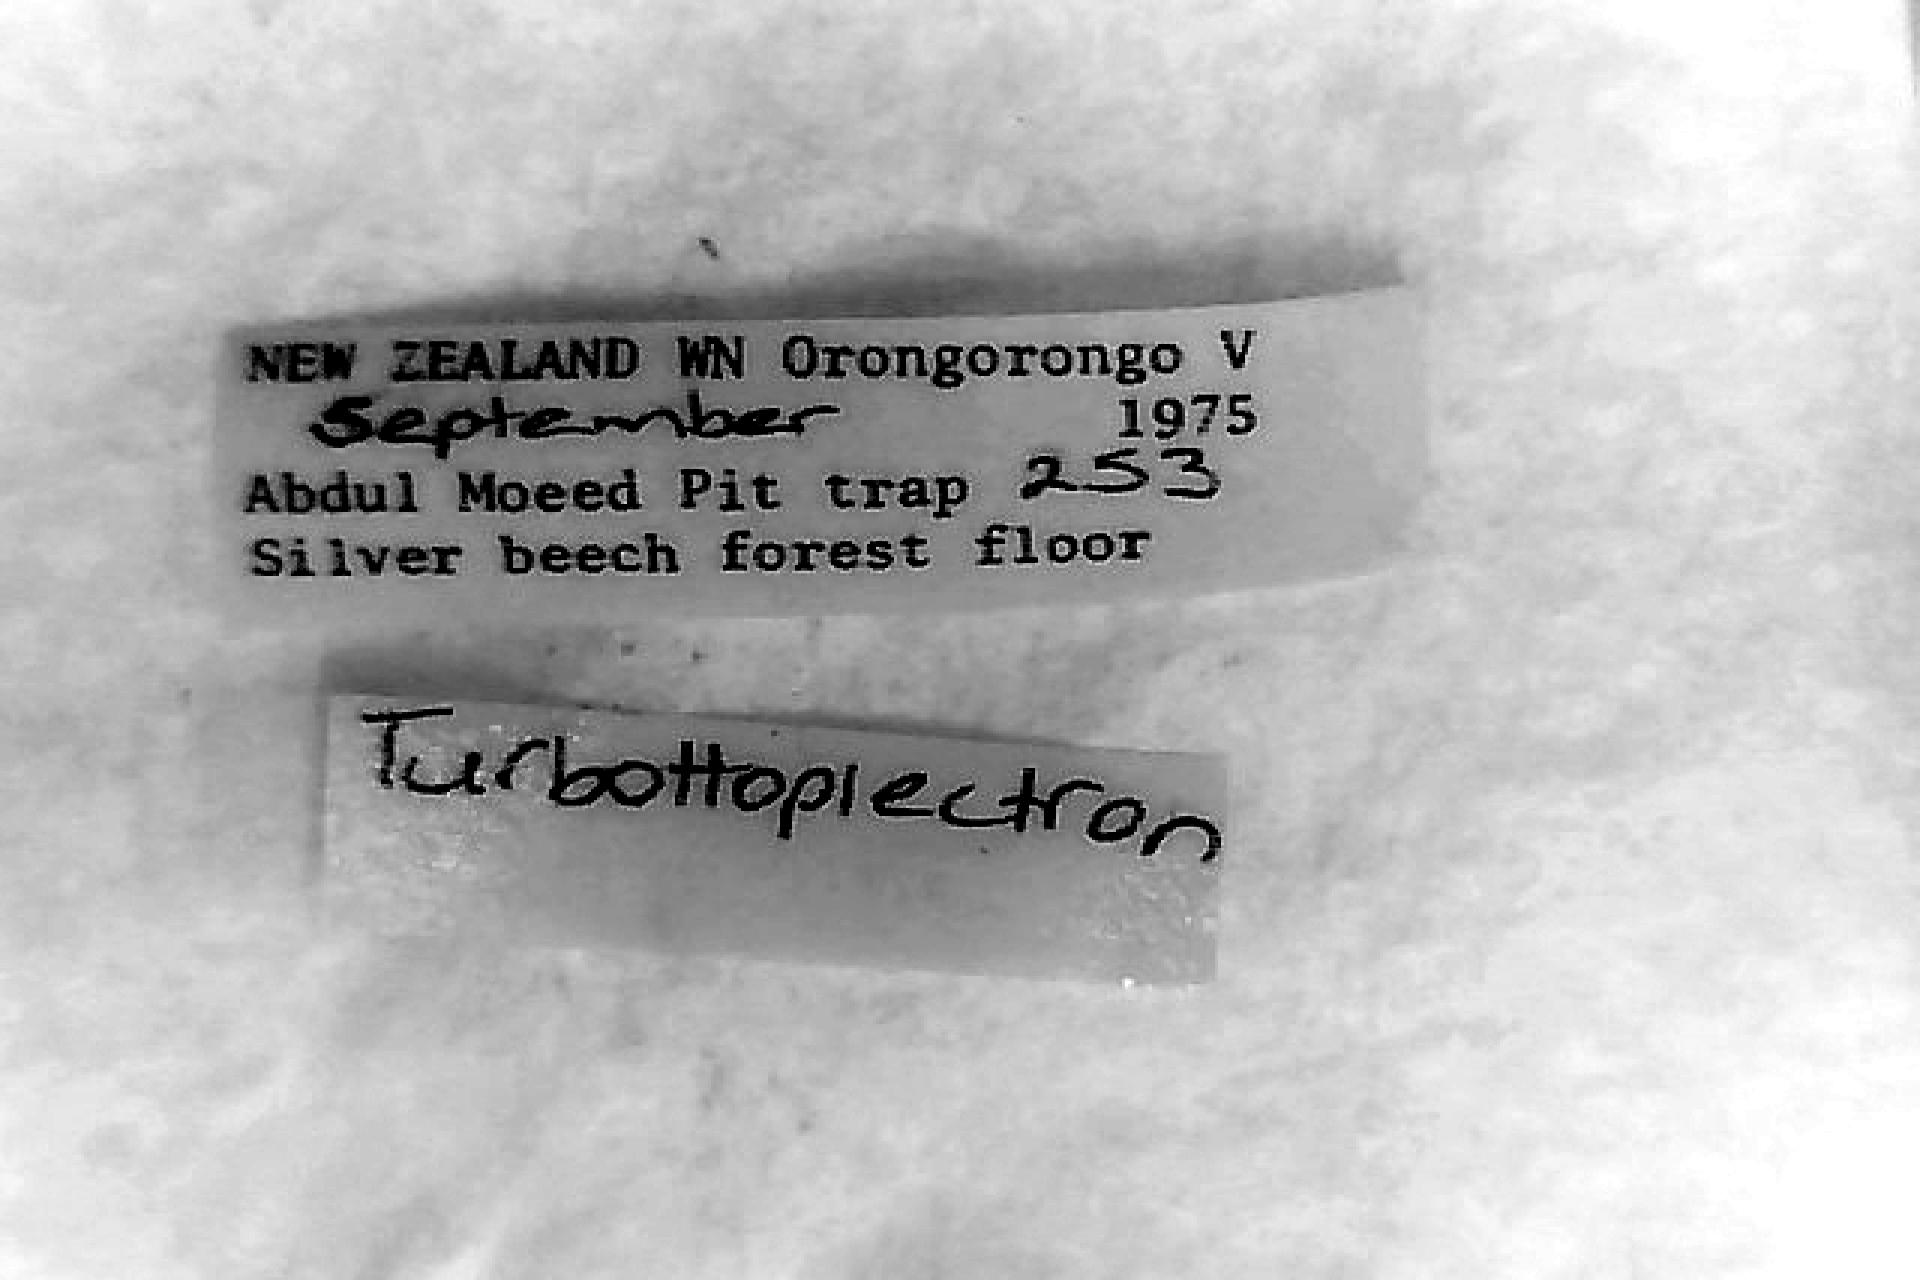 NEW ZEALAND WN Orongorongo V
September 1975
Abdul Moeed Pit trap 253
Silver beech forest floor
Turbottoplectron